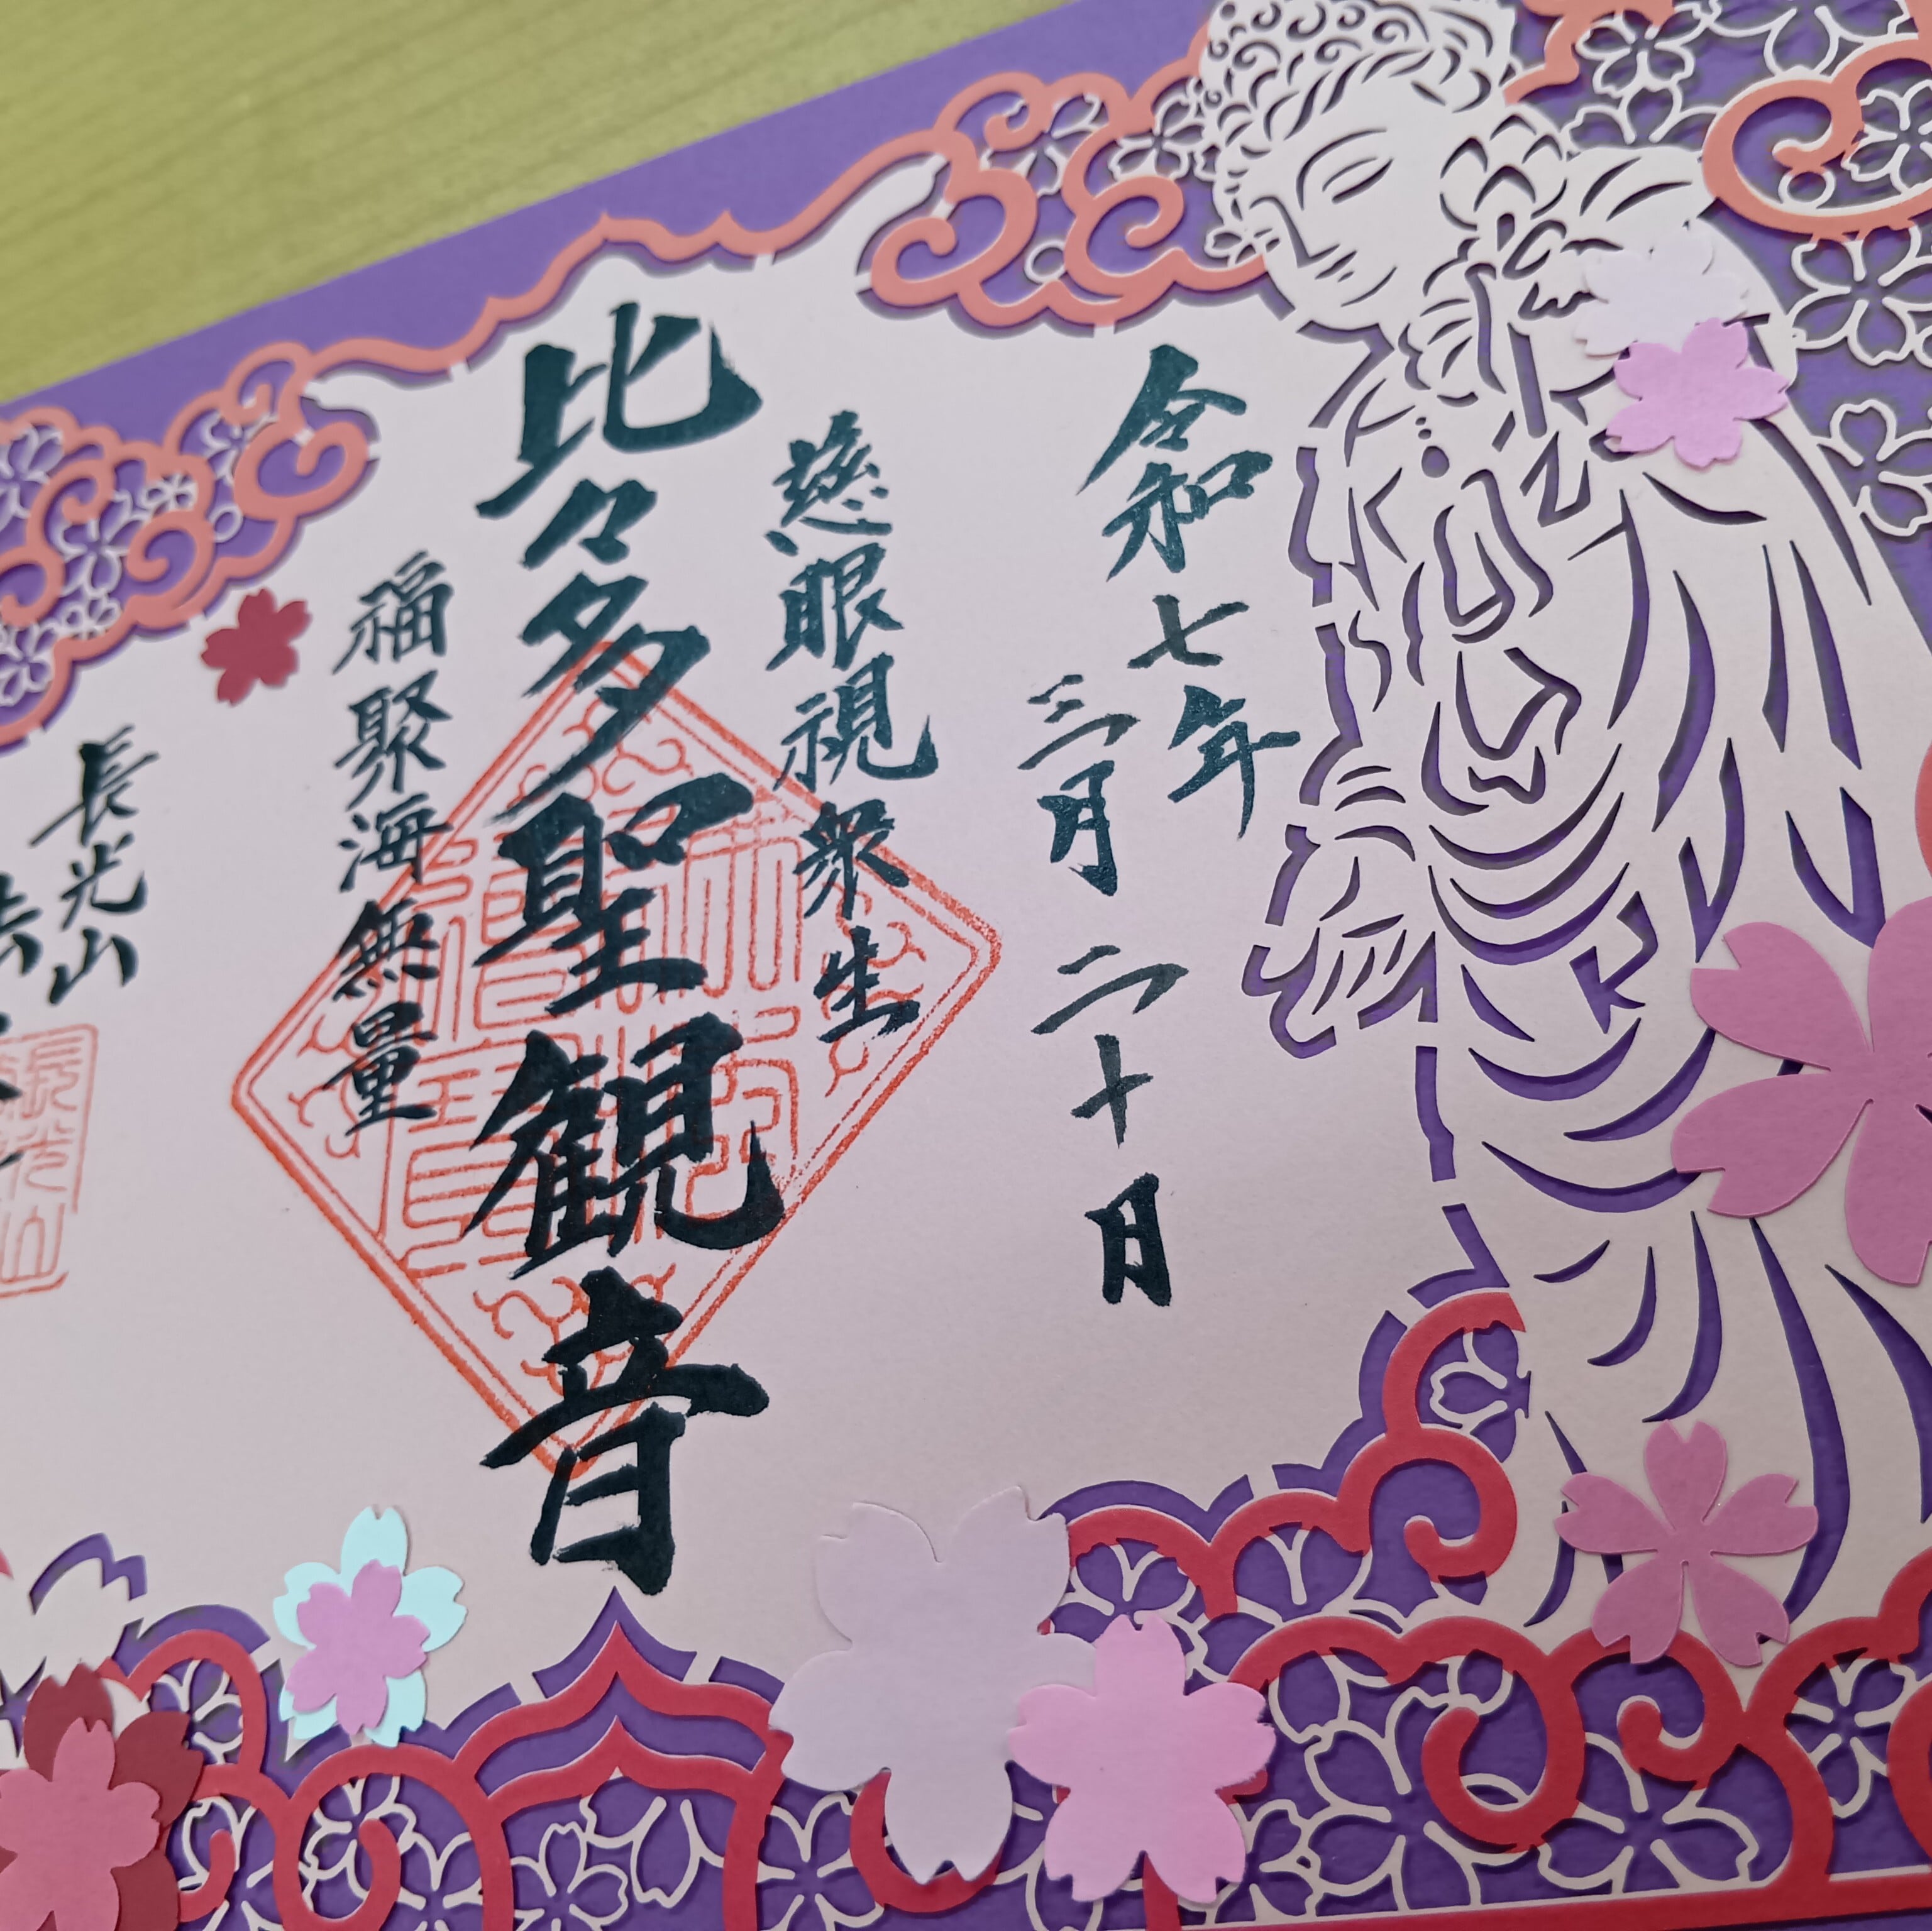 令和七年
三月二十日
慈眼視衆生
比々多聖観音
福聚海無量
長光山